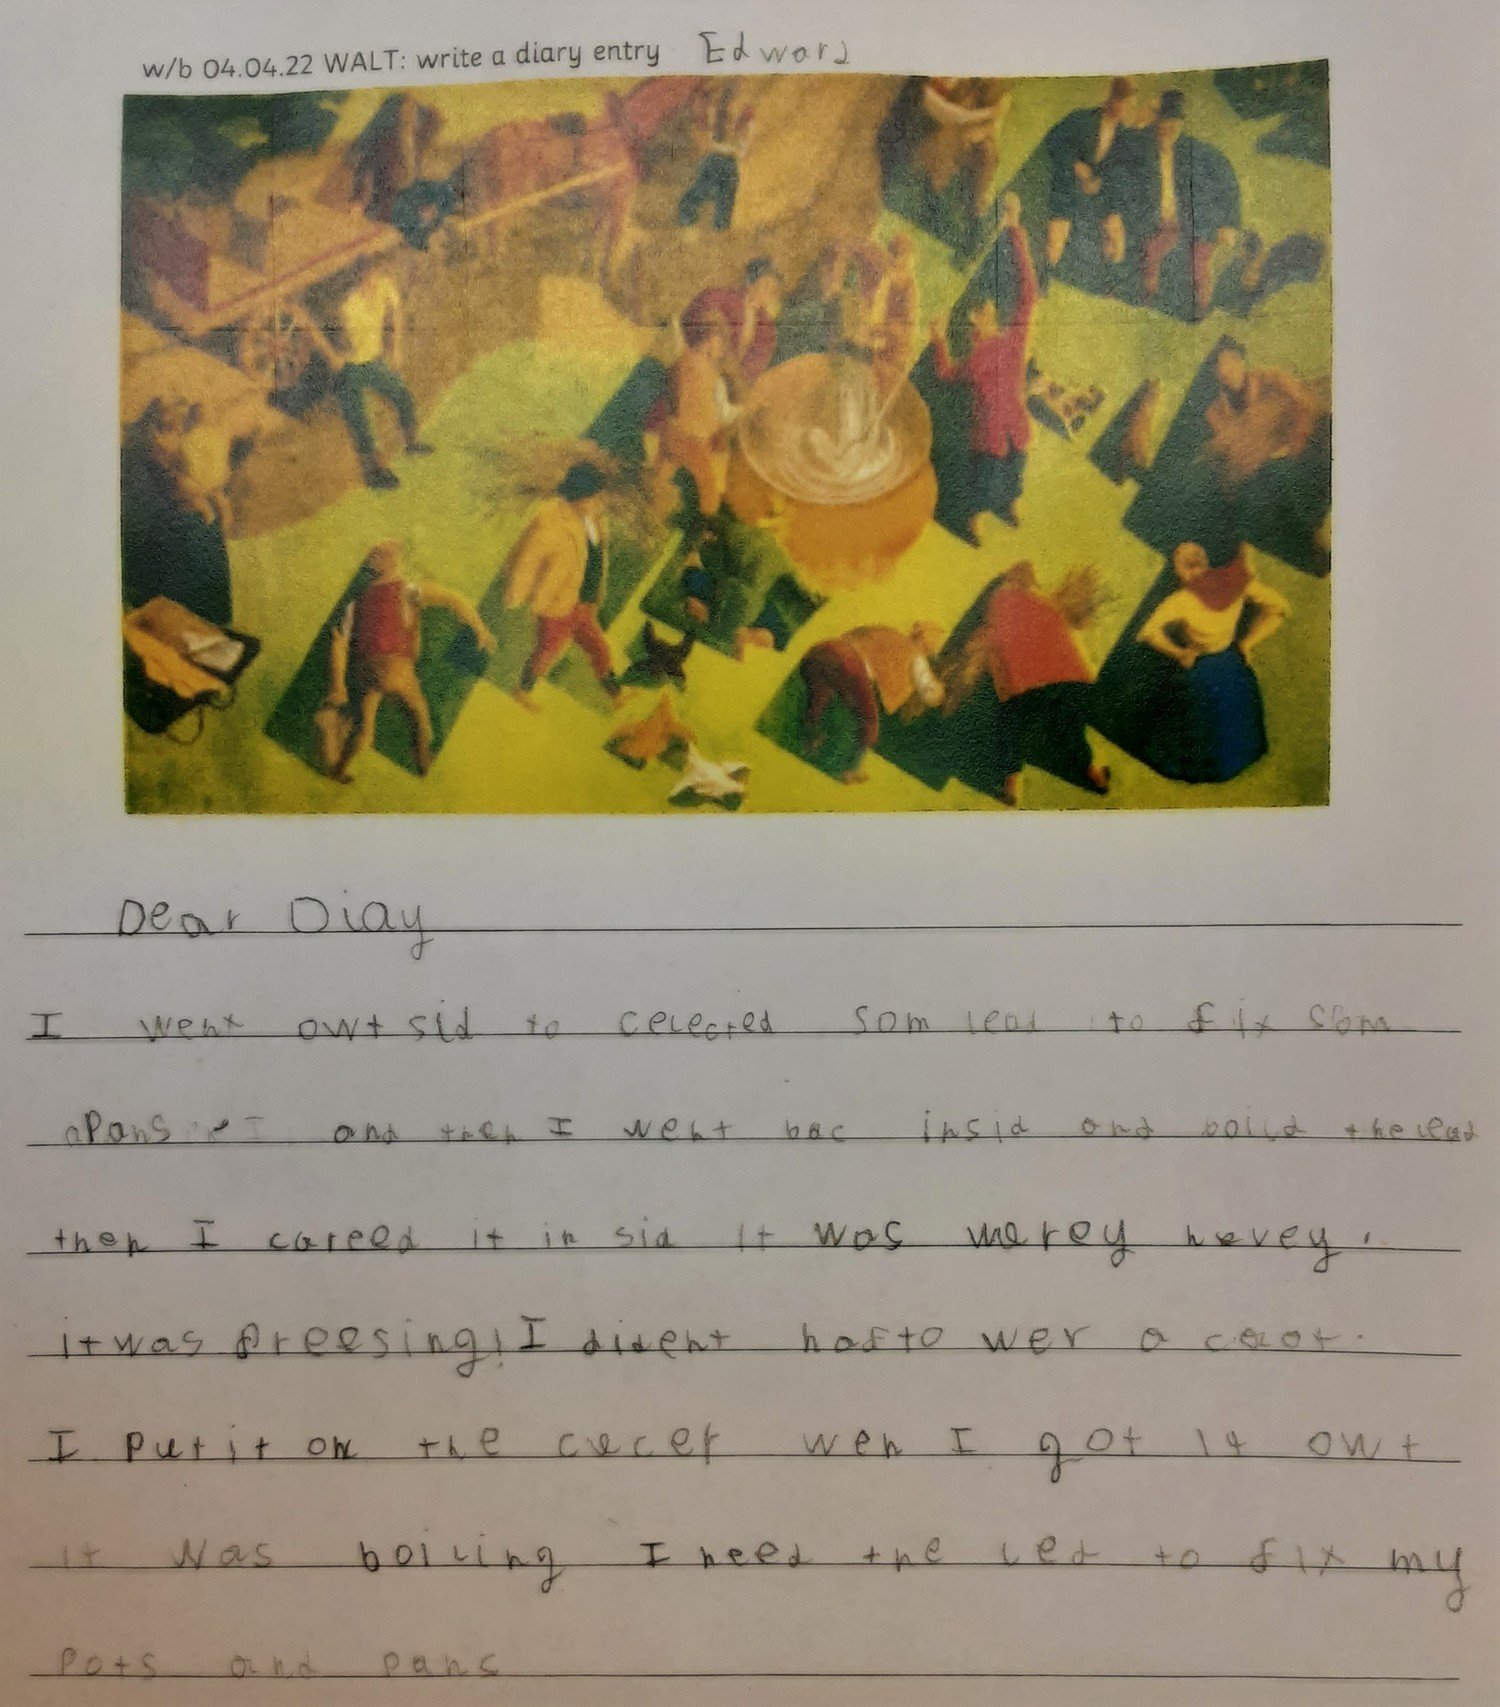 w/b 04.04.22 WALT: write a diary entry Edward
Dear Diay
I went owt sid to celected som lead to fix som
pans and then I went bac insid and boild the lead
then I careed it in sid it was merey hevey.
it was freesing! I dident haf to wer a caot.
I put it on the cucer wen I got it owt
it was boiling I need the led to fix my
pots and pans